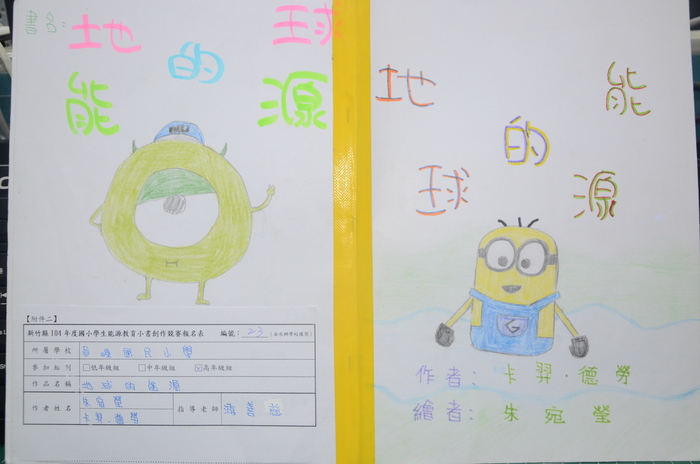 書名：地的球
能源
【附件二】
新竹縣104年度國小學生能源教育小書創作競賽報名表 編號：23
所屬學校 國民小學
參加組別 □低年級組 □中年級組 ☑高年級組
作品名稱 地球的能源
作者姓名 朱宛瑩 指導老師
卡羿·德勞
地 能
的
球 源
G
作者：卡羿·德勞
繪者：朱宛瑩